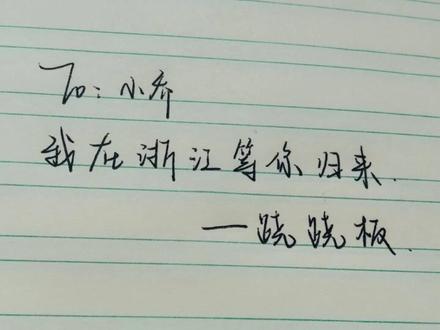 To: 小乔
我在浙江等你归来.
—跷跷板.